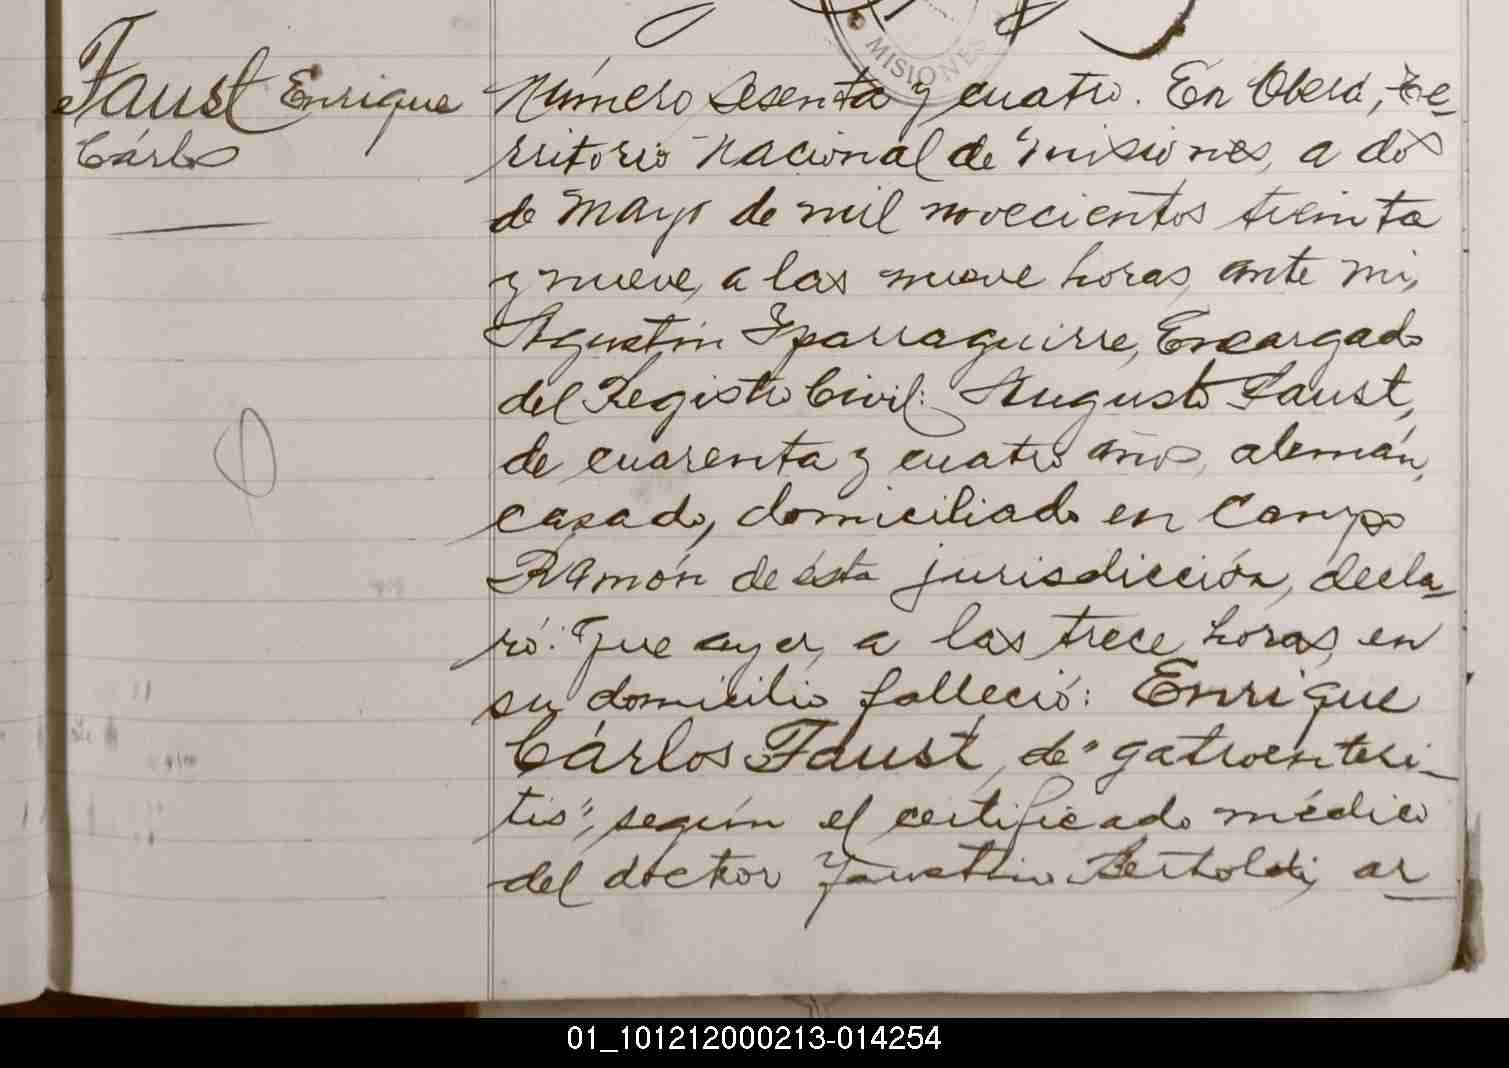 MISIONES
Faust Enrique
Cárlos
Número sesenta y cuatro. En Oberá, Te-
rritorio Nacional de Misiones, a dos
de Mayo de mil novecientos treinta
y nueve, a las nueve horas, ante mi,
Agustín Yparraguirre, Encargado
del Registro Civil: Augusto Faust,
de cuarenta y cuatro años, alemán,
casado, domiciliado en Campo
Ramón de ésta jurisdicción, decla-
ró: Que ayer, a las trece horas, en
su domicilio falleció: Enrique
Cárlos Faust, de "gatroenteri-
tis", según el certificado médico
del doctor Faustino Bertholdi, ar-
01_101212000213-014254